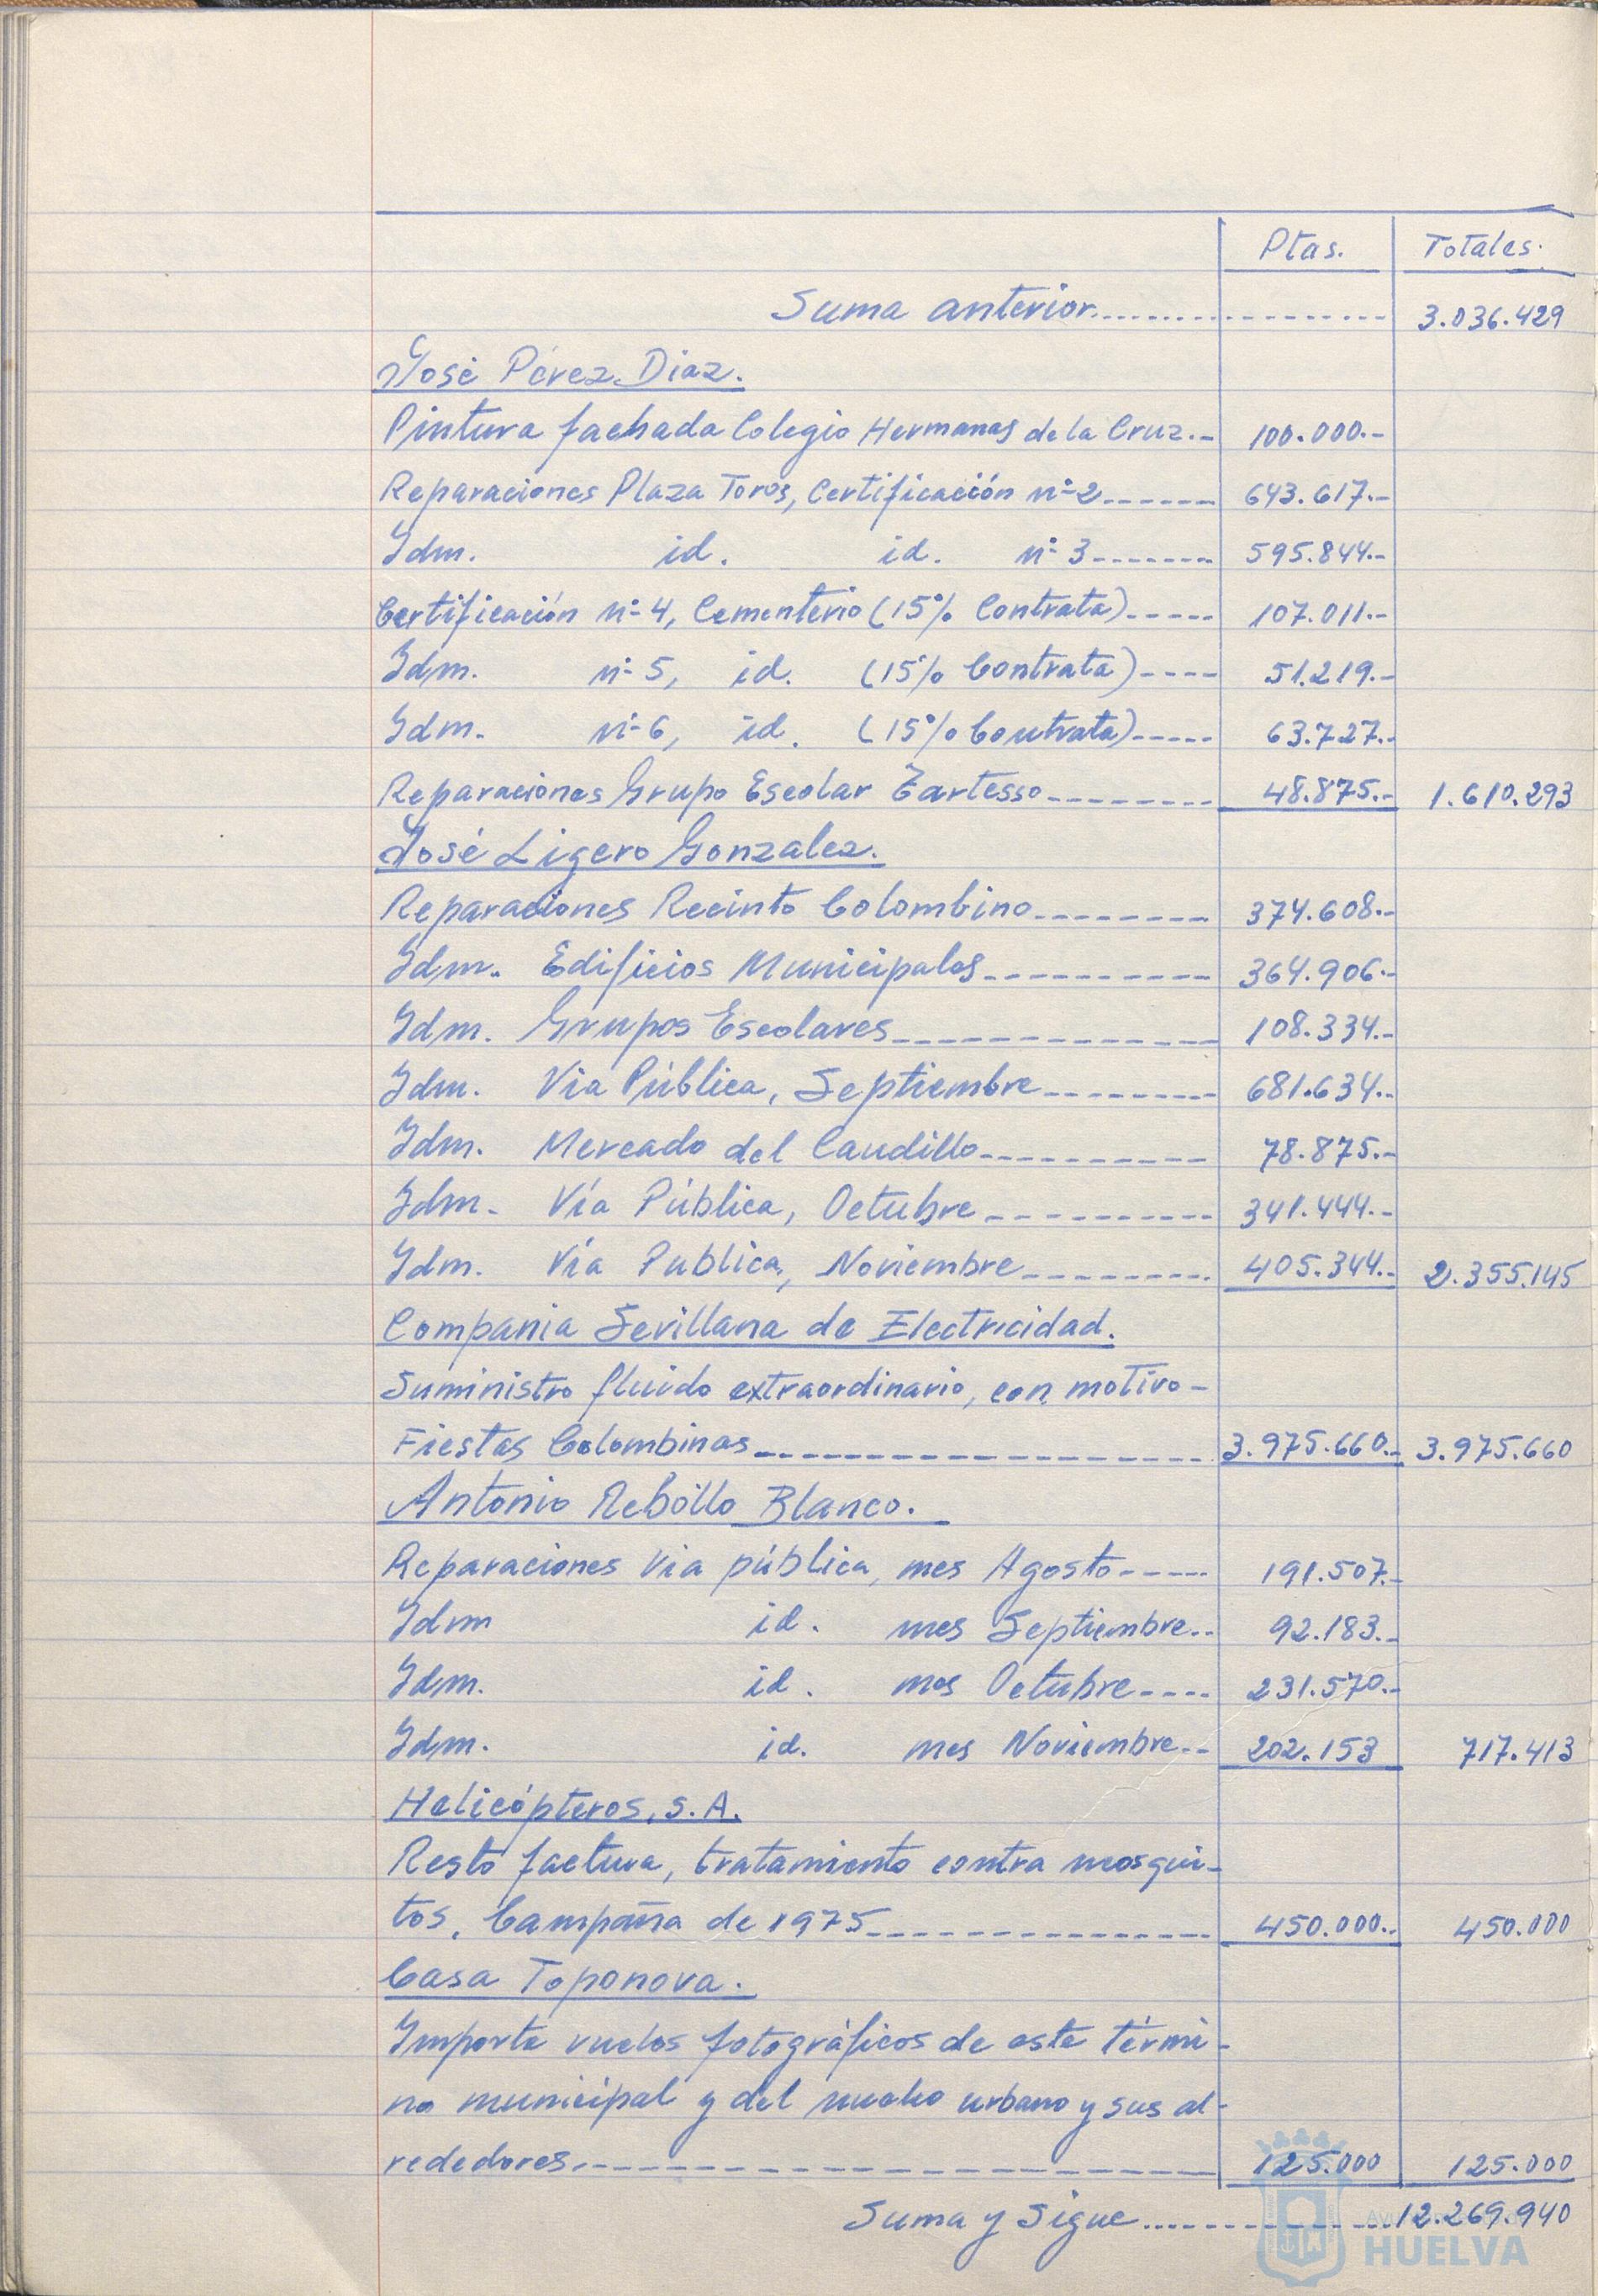 Ptas. Totales.
Suma anterior.................. 3.036.429
José Pérez Diaz.
Pintura fachada Colegio Hermanas de la Cruz.- 100.000.-
Reparaciones Plaza Toros, Certificación nº 2------ 643.617.-
Idm. id. id. nº 3------- 595.844.-
Certificación nº 4, Cementerio (15% Contrata)----- 107.011.-
Idm. nº 5, id. (15% Contrata)---- 51.219.-
Idm. nº 6, id. (15% Contrata)----- 63.727.-
Reparaciones Grupo Escolar Tartesso-------- 48.875.- 1.610.293
José Ligero Gonzalez.
Reparaciones Recinto Colombino-------- 374.608.-
Idm. Edificios Municipales---------- 364.906.-
Idm. Grupos Escolares------------- 108.334.-
Idm. Via Pública, Septiembre-------- 681.634.-
Idm. Mercado del Caudillo---------- 78.875.-
Idm. Vía Pública, Octubre---------- 341.444.-
Idm. Vía Publica, Noviembre--------- 405.344.- 2.355.145
Compania Sevillana de Electricidad.
Suministro fluido extraordinario, con motivo-
Fiestas Colombinas----------------- 3.975.660.- 3.975.660
Antonio Rebollo Blanco.
Reparaciones Via pública, mes Agosto----- 191.507.-
Idm id. mes Septiembre.. 92.183.-
Idm. id. mes Octubre---- 231.570.-
Idm. id. mes Noviembre-- 202.153 717.413
Helicópteros, S.A.
Resto factura, tratamiento contra mosqui-
tos, Campaña de 1975-------------- 450.000.- 450.000
Casa Toponova.
Importe vuelos fotográficos de este térmi-
no municipal y del nucleo urbano y sus al-
rededores.------------------- 125.000 125.000
Suma y Sigue.................12.269.940
HUELVA